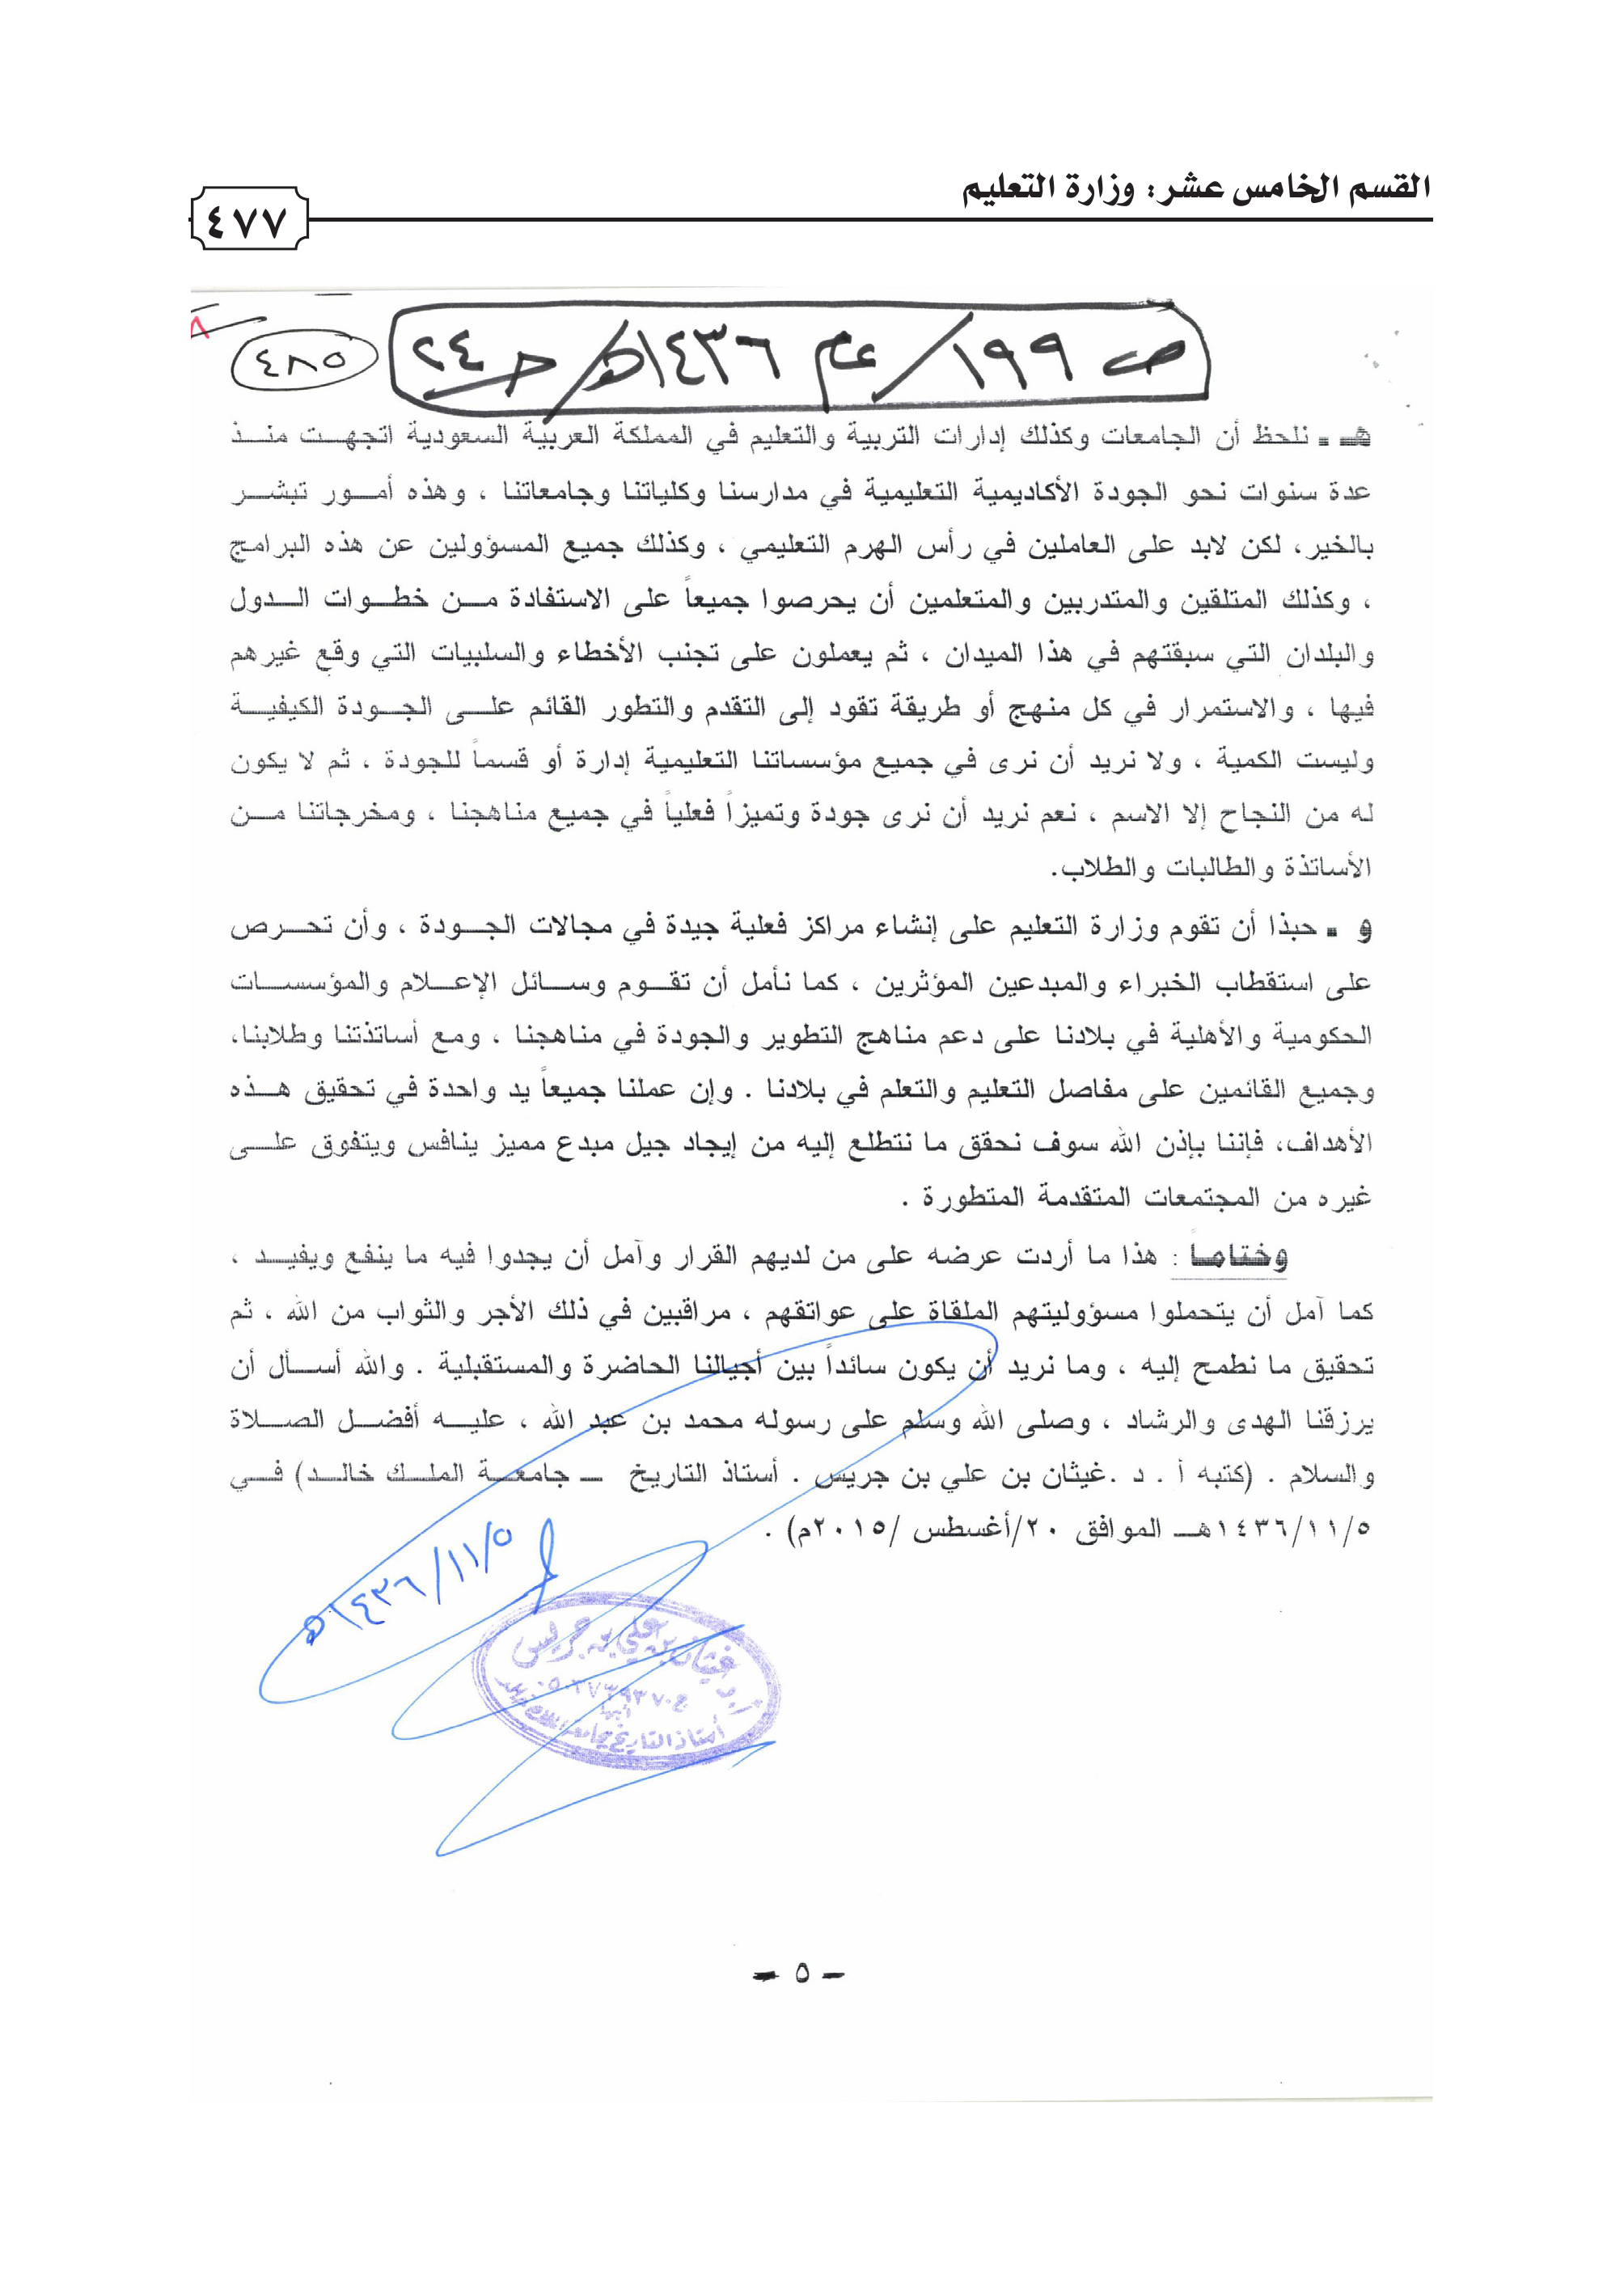 القسم الخامس عشر: وزارة التعليم
٤٧٧
ص ١٩٩/ عام ١٤٣٦هـ/ ج٢٤
٤٨٥
هـ - نلحظ أن الجامعات وكذلك إدارات التربية والتعليم في المملكة العربية السعودية اتجهت منذ
عدة سنوات نحو الجودة الأكاديمية التعليمية في مدارسنا وكلياتنا وجامعاتنا ، وهذه أمور تبشر
بالخير، لكن لابد على العاملين في رأس الهرم التعليمي ، وكذلك جميع المسؤولين عن هذه البرامج
، وكذلك المتلقين والمتدربين والمتعلمين أن يحرصوا جميعاً على الاستفادة من خطوات الدول
والبلدان التي سبقتهم في هذا الميدان ، ثم يعملون على تجنب الأخطاء والسلبيات التي وقع غيرهم
فيها ، والاستمرار في كل منهج أو طريقة تقود إلى التقدم والتطور القائم على الجودة الكيفية
وليست الكمية ، ولا نريد أن نرى في جميع مؤسساتنا التعليمية إدارة أو قسماً للجودة ، ثم لا يكون
له من النجاح إلا الاسم ، نعم نريد أن نرى جودة وتميزاً فعلياً في جميع مناهجنا ، ومخرجاتنا من
الأساتذة والطالبات والطلاب.
و - حبذا أن تقوم وزارة التعليم على إنشاء مراكز فعلية جيدة في مجالات الجودة ، وأن تحرص
على استقطاب الخبراء والمبدعين المؤثرين ، كما نأمل أن تقوم وسائل الإعلام والمؤسسات
الحكومية والأهلية في بلادنا على دعم مناهج التطوير والجودة في مناهجنا ، ومع أساتذتنا وطلابنا،
وجميع القائمين على مفاصل التعليم والتعلم في بلادنا . وإن عملنا جميعاً يد واحدة في تحقيق هذه
الأهداف، فإننا بإذن الله سوف نحقق ما نتطلع إليه من إيجاد جيل مبدع مميز ينافس ويتفوق على
غيره من المجتمعات المتقدمة المتطورة .
وختاماً : هذا ما أردت عرضه على من لديهم القرار وآمل أن يجدوا فيه ما ينفع ويفيد ،
كما آمل أن يتحملوا مسؤوليتهم الملقاة على عواتقهم ، مراقبين في ذلك الأجر والثواب من الله ، ثم
تحقيق ما نطمح إليه ، وما نريد أن يكون سائداً بين أجيالنا الحاضرة والمستقبلية . والله أسأل أن
يرزقنا الهدى والرشاد ، وصلى الله وسلم على رسوله محمد بن عبد الله ، عليه أفضل الصلاة
والسلام . (كتبه أ . د .غيثان بن علي بن جريس . أستاذ التاريخ – جامعة الملك خالد) في
١٤٣٦/١١/٥هـ الموافق ٢٠/أغسطس /٢٠١٥م) .
١٤٣٦/١١/٥هـ
غيثان بن علي بن جريس
أبها
أستاذ التاريخ بجامعة الملك خالد
- ٥ -